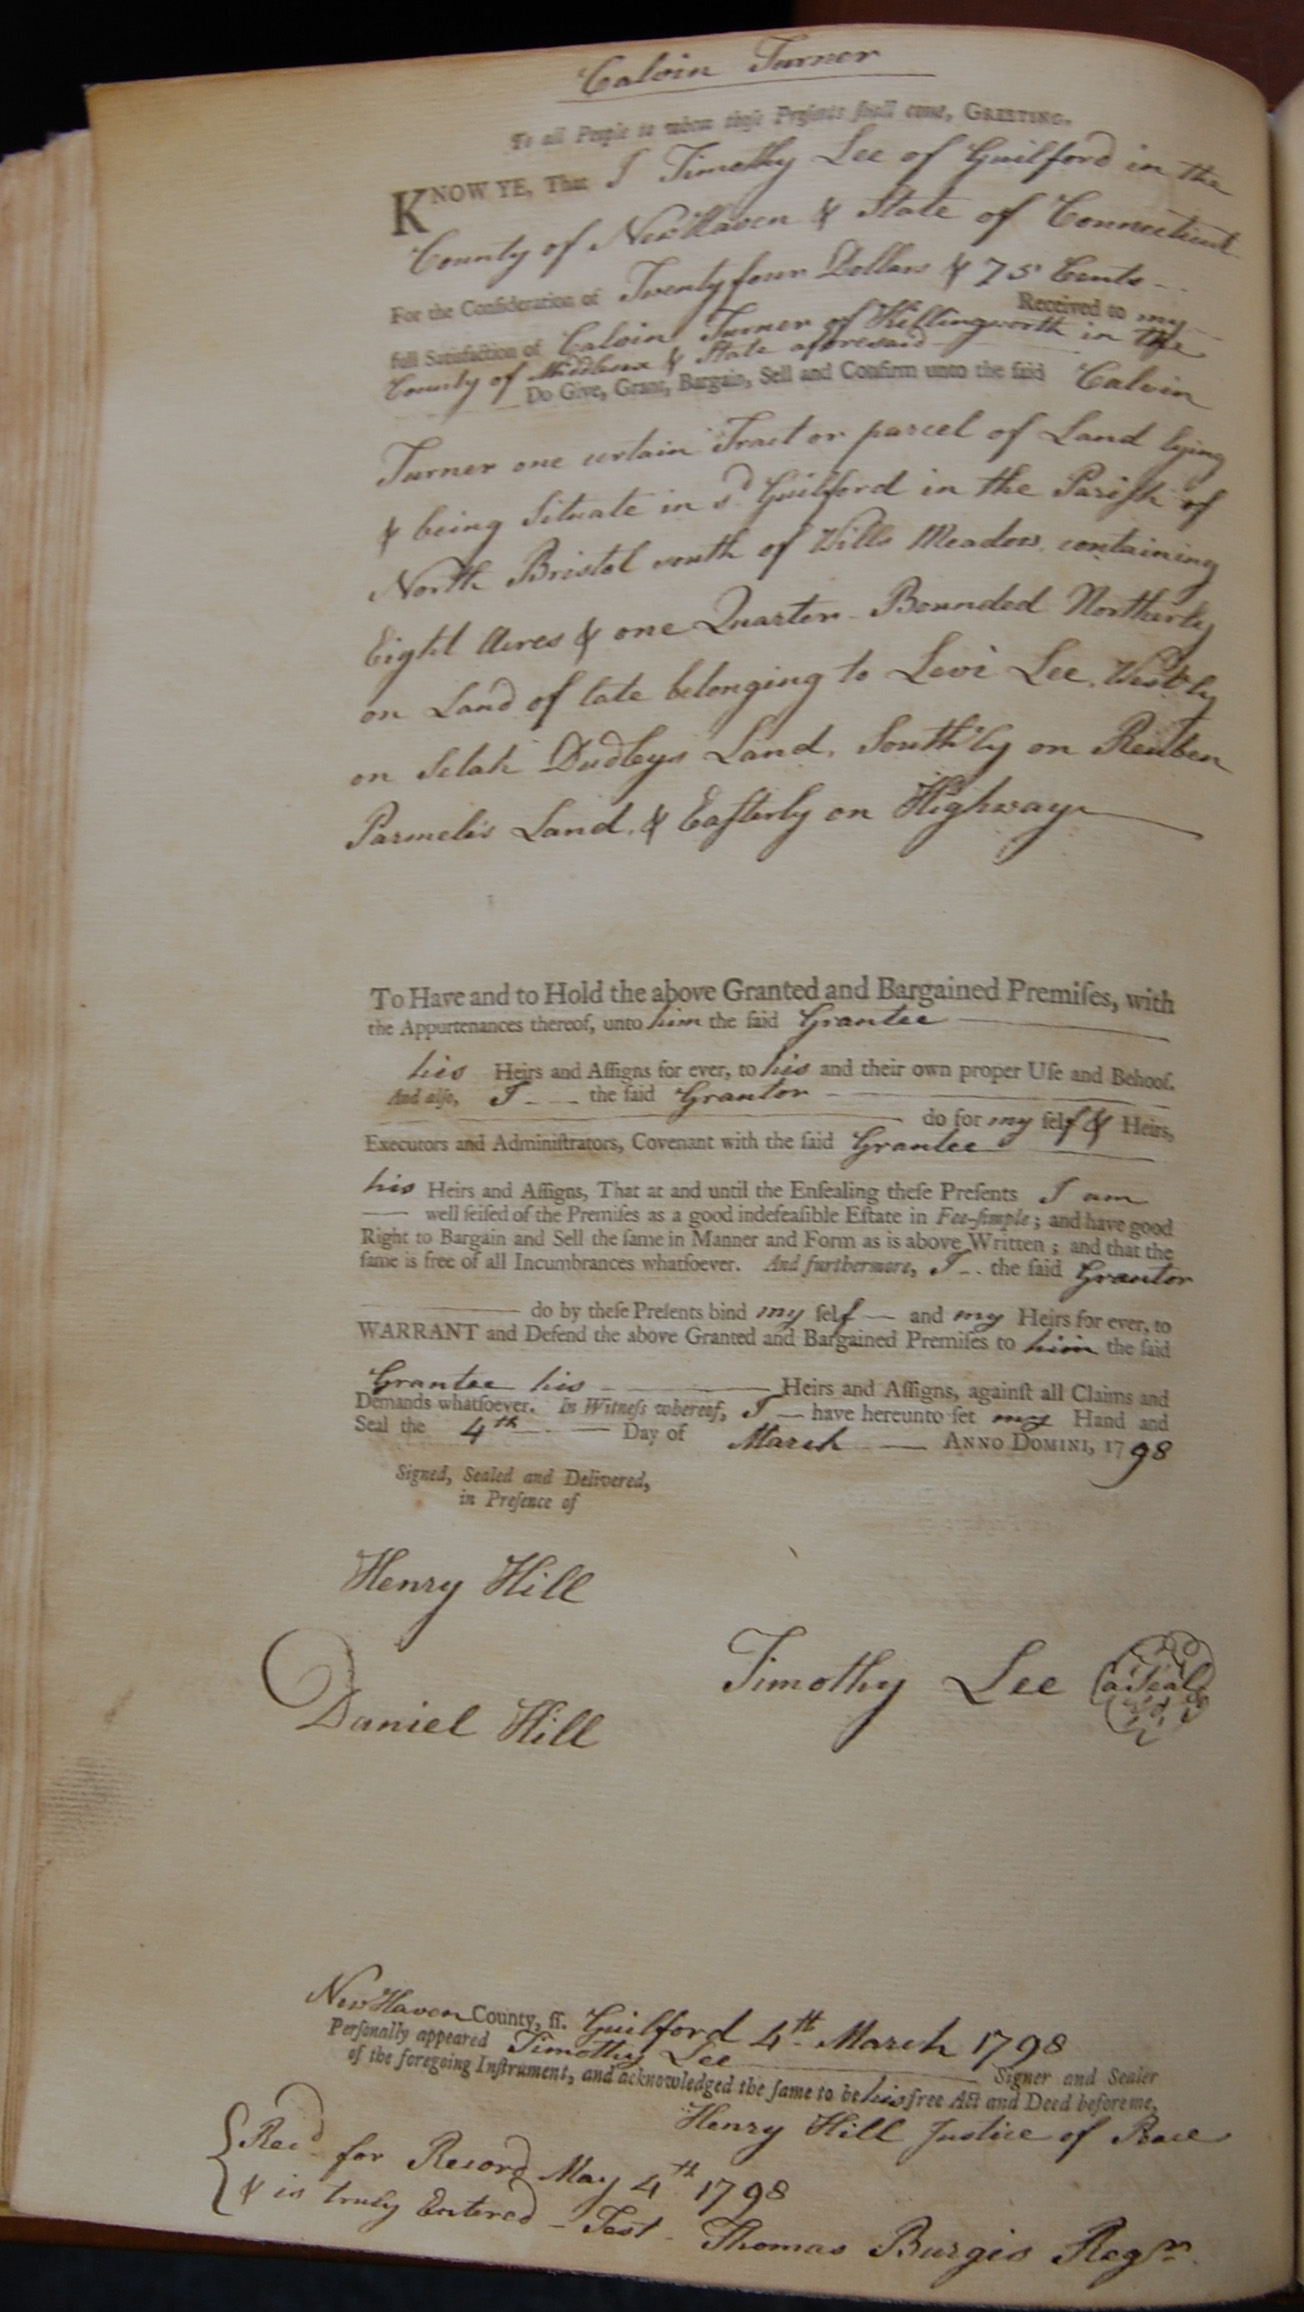 Calvin Turner
To all People to whom these Presents shall come, GREETING.
KNOW YE, That I Timothy Lee of Guilford in the
County of New Haven & State of Connecticut
For the Consideration of Twenty four Dollars & 75 Cents
Received to my
full Satisfaction of Calvin Turner of Killingworth in the
County of Middlesex & State aforesaid
Do Give, Grant, Bargain, Sell and Confirm unto the said Calvin
Turner one certain Tract or parcel of Land lying
& being Situate in sd. Guilford in the Parish of
North Bristol south of Wills Meadow, containing
Eight Acres & one Quarter - Bounded Northerly
on Land of late belonging to Levi Lee, Westerly
on Selah Dudleys Land, South'ly on Reuben
Parmeles Land, & Easterly on Highway
To Have and to Hold the above Granted and Bargained Premises, with
the Appurtenances thereof, unto him the said Grantee
his Heirs and Assigns for ever, to his and their own proper Use and Behoof.
And also, I the said Grantor
do for my self & Heirs,
Executors and Administrators, Covenant with the said Grantee
his Heirs and Assigns, That at and until the Ensealing these Presents I am
well seised of the Premises as a good indefeasible Estate in Fee-simple; and have good
Right to Bargain and Sell the same in Manner and Form as is above Written; and that the
same is free of all Incumbrances whatsoever. And furthermore, I the said Grantor
do by these Presents bind my self and my Heirs for ever, to
WARRANT and Defend the above Granted and Bargained Premises to him the said
Grantee his Heirs and Assigns, against all Claims and
Demands whatsoever. In Witness whereof, I have hereunto set my Hand and
Seal the 4th Day of March ANNO DOMINI, 1798
Signed, Sealed and Delivered,
in Presence of
Henry Hill
Timothy Lee a Seal
Daniel Hill
New Haven County, ss. Guilford 4th March 1798
Personally appeared Timothy Lee Signer and Sealer
of the foregoing Instrument, and acknowledged the same to be his free Act and Deed before me,
Henry Hill Justice of Peace
Recd for Record May 4th 1798
& is truly Entered - Test - Thomas Burgis Regr.